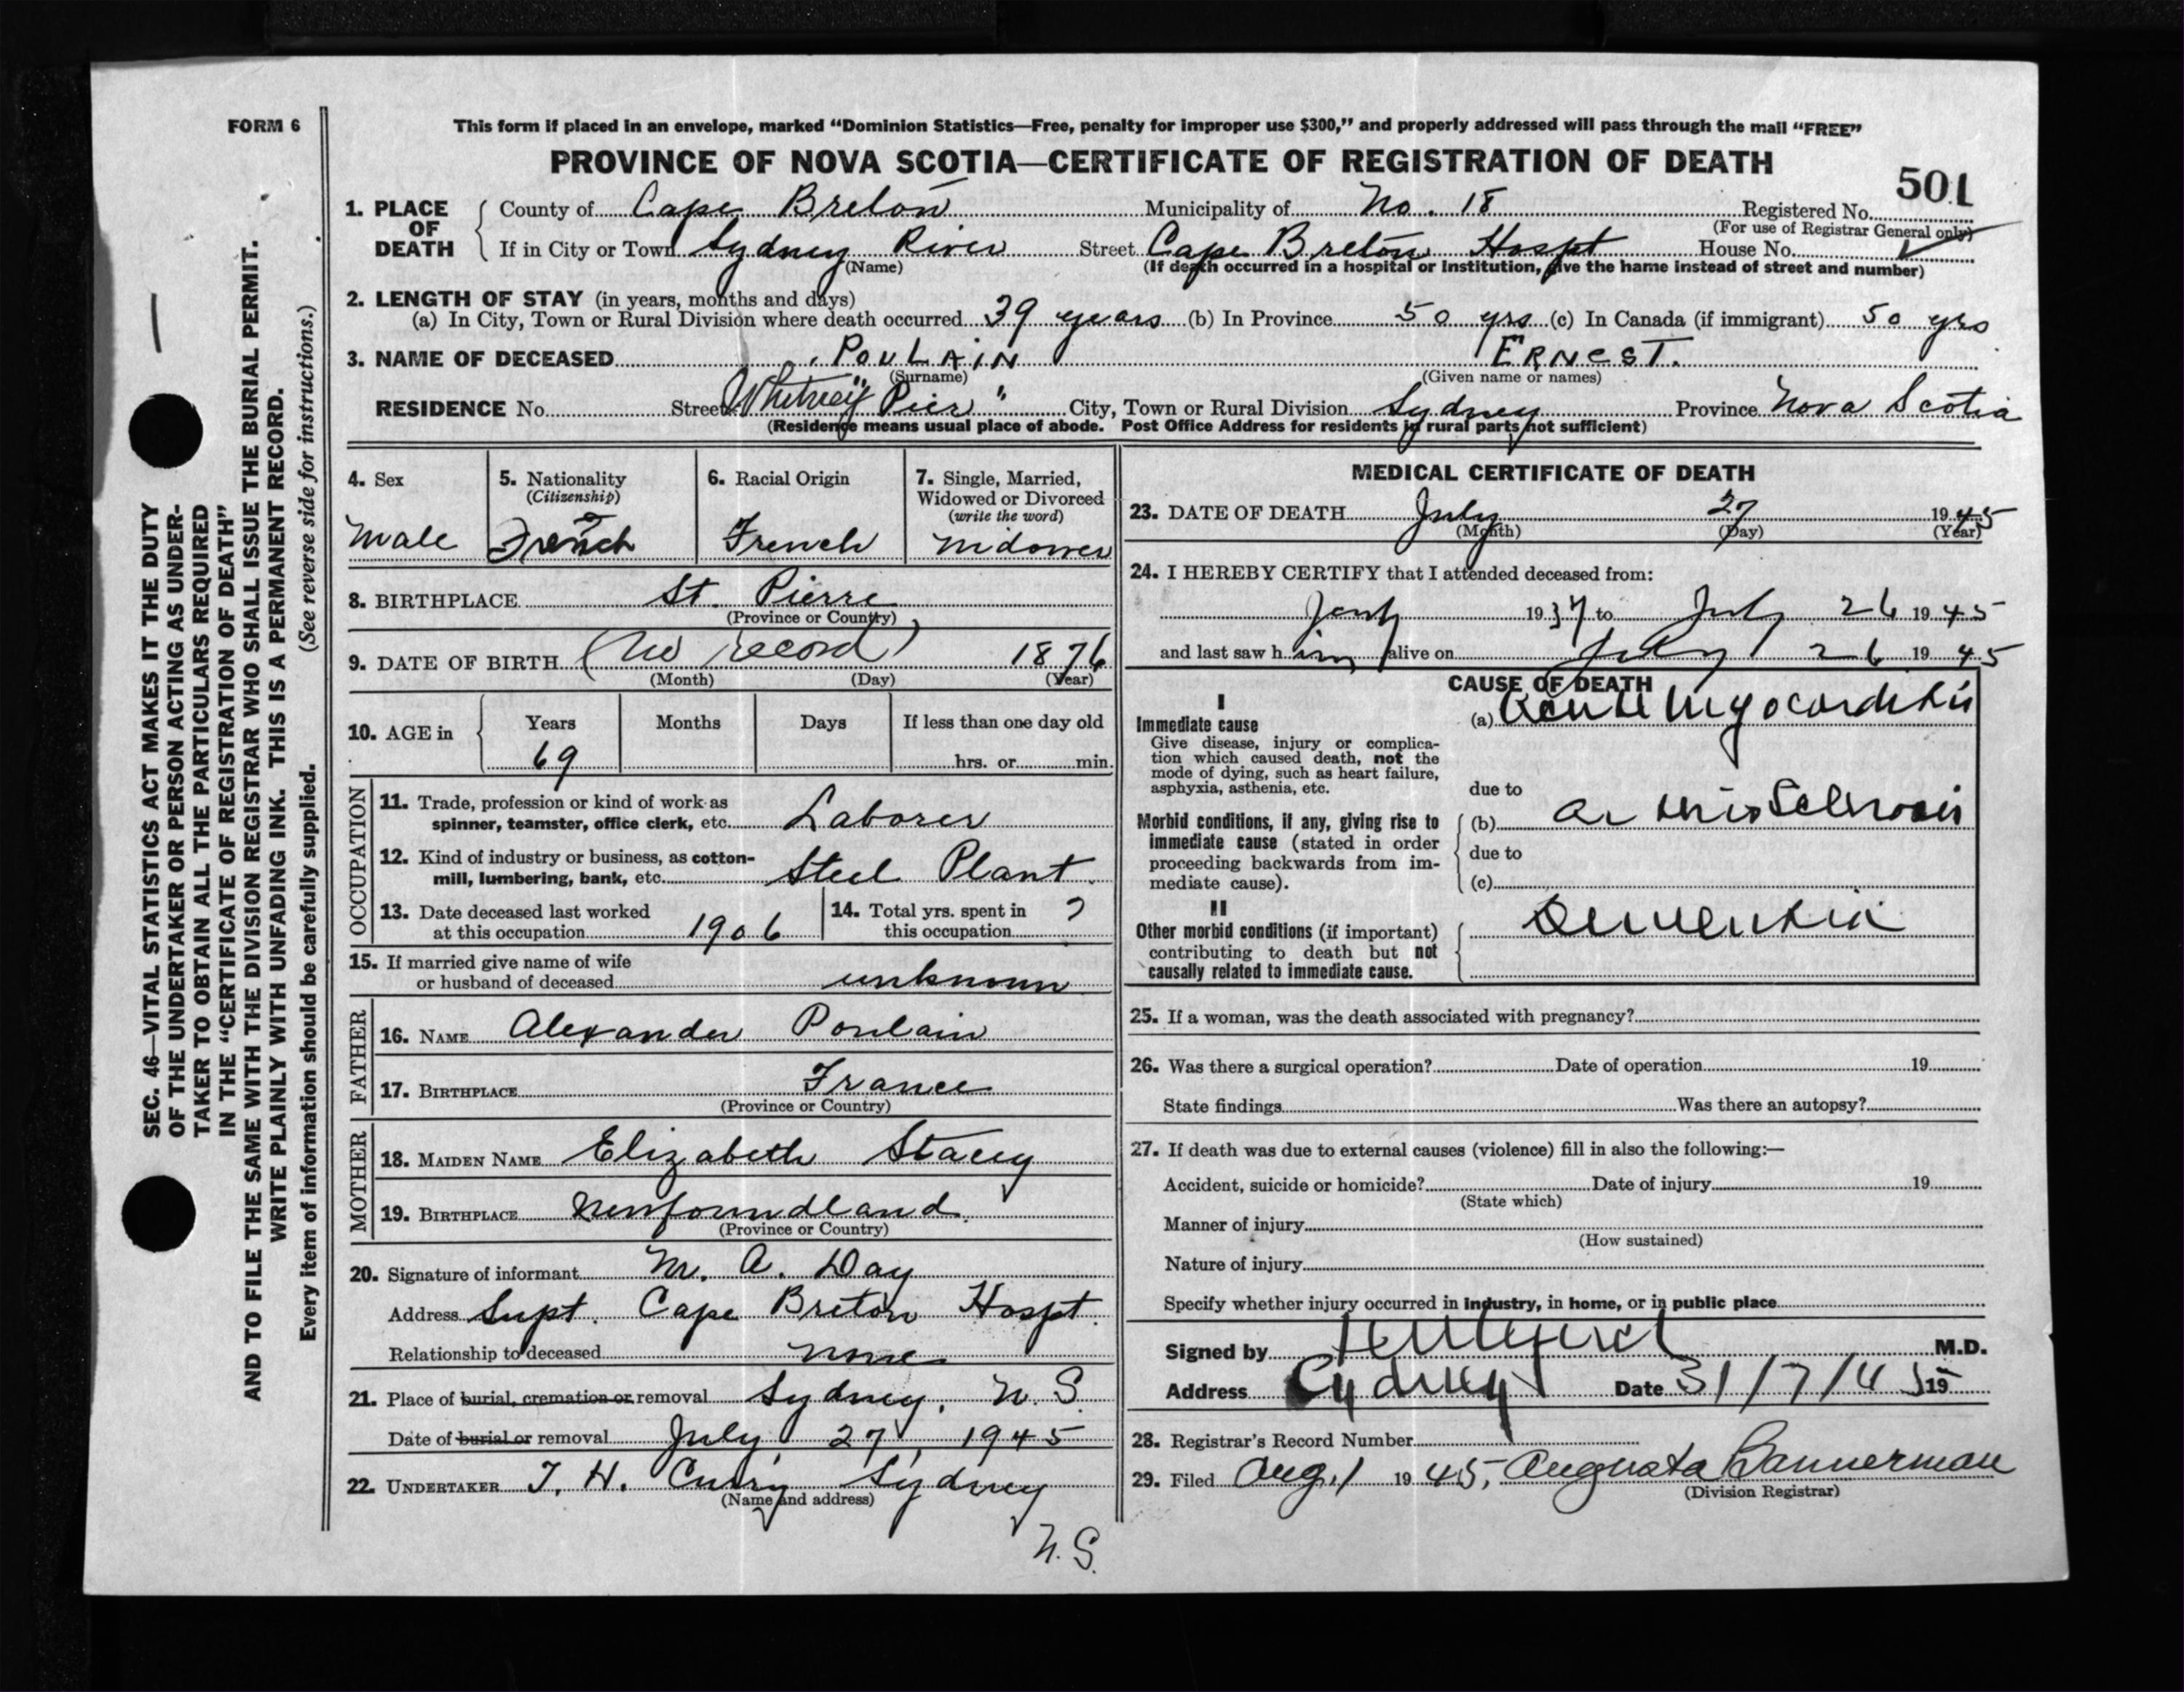 FORM 6
This form if placed in an envelope, marked “Dominion Statistics—Free, penalty for improper use $300,” and properly addressed will pass through the mail “FREE”
PROVINCE OF NOVA SCOTIA—CERTIFICATE OF REGISTRATION OF DEATH
501
1. PLACE OF DEATH
County of Cape Breton Municipality of No. 18 Registered No.
(For use of Registrar General only)
If in City or Town Sydney River Street Cape Breton Hospt House No.
(Name) (If death occurred in a hospital or institution, give the name instead of street and number)
2. LENGTH OF STAY (in years, months and days)
(a) In City, Town or Rural Division where death occurred 39 years (b) In Province 50 yrs (c) In Canada (if immigrant) 50 yrs
3. NAME OF DECEASED POULAIN ERNEST.
(Surname) (Given name or names)
RESIDENCE No. Street "Whitney Pier" City, Town or Rural Division Sydney Province Nova Scotia
(Residence means usual place of abode. Post Office Address for residents in rural parts not sufficient)
SEC. 46—VITAL STATISTICS ACT MAKES IT THE DUTY
OF THE UNDERTAKER OR PERSON ACTING AS UNDER-
TAKER TO OBTAIN ALL THE PARTICULARS REQUIRED
IN THE “CERTIFICATE OF REGISTRATION OF DEATH”
AND TO FILE THE SAME WITH THE DIVISION REGISTRAR WHO SHALL ISSUE THE BURIAL PERMIT.
WRITE PLAINLY WITH UNFADING INK. THIS IS A PERMANENT RECORD.
Every item of information should be carefully supplied. (See reverse side for instructions.)
4. Sex
Male
5. Nationality
(Citizenship)
French
6. Racial Origin
French
7. Single, Married,
Widowed or Divorced
(write the word)
Widower
8. BIRTHPLACE St. Pierre
(Province or Country)
9. DATE OF BIRTH (No record) 1876
(Month) (Day) (Year)
10. AGE in
Years Months Days If less than one day old
69 hrs. or min.
OCCUPATION
11. Trade, profession or kind of work as
spinner, teamster, office clerk, etc. Laborer
12. Kind of industry or business, as cotton-
mill, lumbering, bank, etc. Steel Plant.
13. Date deceased last worked
at this occupation 1906
14. Total yrs. spent in
this occupation ?
15. If married give name of wife
or husband of deceased unknown
FATHER
16. NAME Alexander Poulain
17. BIRTHPLACE France
(Province or Country)
MOTHER
18. MAIDEN NAME Elizabeth Stacey
19. BIRTHPLACE Newfoundland.
(Province or Country)
20. Signature of informant M. A. Day
Address Supt. Cape Breton Hospt.
Relationship to deceased none
21. Place of burial, cremation or removal Sydney, N. S.
Date of burial or removal July 27, 1945
22. UNDERTAKER T. H. Curry Sydney
(Name and address)
N.S.
MEDICAL CERTIFICATE OF DEATH
23. DATE OF DEATH July 27 1945
(Month) (Day) (Year)
24. I HEREBY CERTIFY that I attended deceased from:
1937 to July 26 1945
and last saw him alive on July 26 1945
CAUSE OF DEATH
I
Immediate cause
Give disease, injury or complica-
tion which caused death, not the
mode of dying, such as heart failure,
asphyxia, asthenia, etc.
(a) Acute Myocarditis
due to
Morbid conditions, if any, giving rise to
immediate cause (stated in order
proceeding backwards from im-
mediate cause).
(b) Arteriosclerosis
due to
(c)
II
Other morbid conditions (if important)
contributing to death but not
causally related to immediate cause.
Dementia
25. If a woman, was the death associated with pregnancy?
26. Was there a surgical operation? Date of operation 19
State findings Was there an autopsy?
27. If death was due to external causes (violence) fill in also the following:—
Accident, suicide or homicide? Date of injury 19
(State which)
Manner of injury
(How sustained)
Nature of injury
Specify whether injury occurred in industry, in home, or in public place
Signed by M.D.
Address Sydney Date 31/7/45 19
28. Registrar's Record Number
29. Filed Aug. 1 1945, Augusta Bannerman
(Division Registrar)